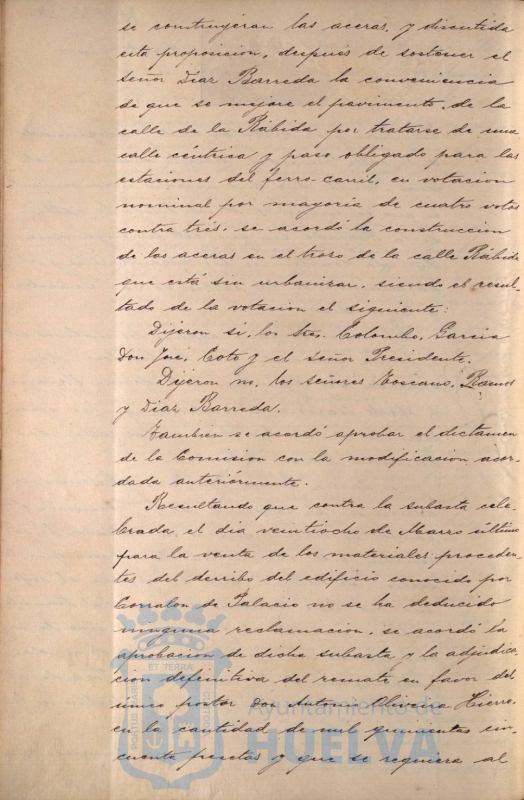 se construyeran las aceras, y discutida
esta proposicion, despues de sostener el
Señor Díaz Barreda la conveniencia
de que se mejore el pavimento, de la
calle de la Rábida por tratarse de una
calle céntrica y paso obligado para las
estaciones del ferro-carril, en votacion
nominal por mayoría de cuatro votos
contra tres, se acordó la construccion
de las aceras en el trozo de la calle Rábida
que está sin urbanizar, siendo el resul-
tado de la votacion el siguiente:
Dijeron si, los Sres. Colombo, Garcia
Don José, Coto y el señor Presidente.
Dijeron no, los señores Toscano, Ramos
y Díaz Barreda.
Tambien se acordó aprobar el dictamen
de la Comision con la modificacion acor-
dada anteriormente.
Resultando que contra la subasta cele-
brada el dia veintiocho de Marzo último
para la venta de los materiales proceden-
tes del derribo del edificio conocido por
Corralon de Palacio no se ha deducido
ninguna reclamacion, se acordó la
aprobacion de dicha subasta y la adjudica-
cion definitiva del remate en favor del
único postor Don Antonio Oliveira Hierro
en la cantidad de mil quinientas cin-
cuenta pesetas y que se requiera al
PORTUS MARIS
ET TERRÆ
CUSTODIA
Ayuntamiento de
HUELVA